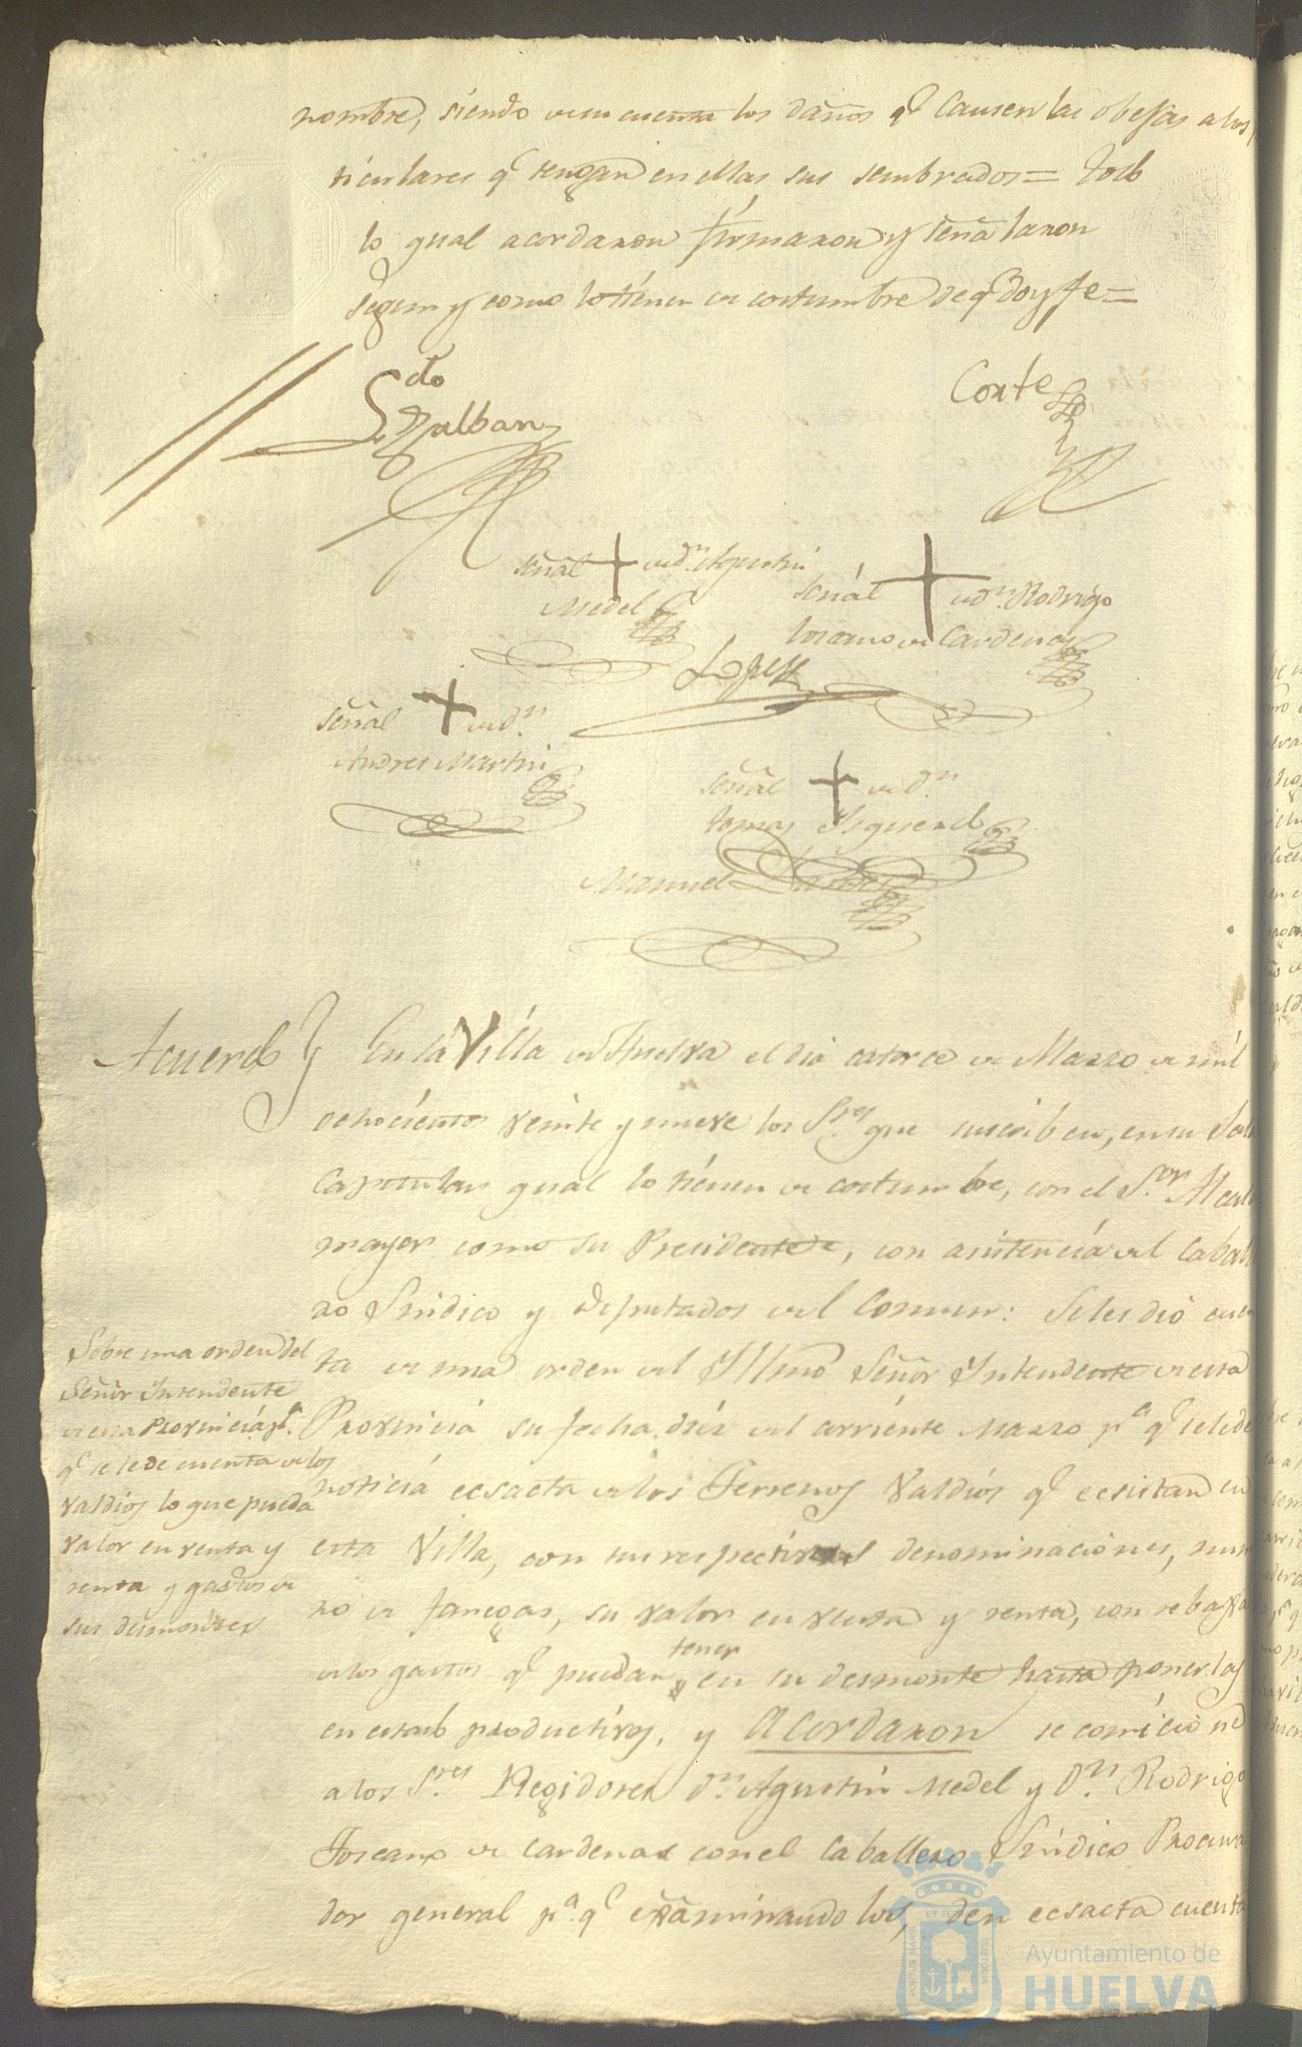 nombre, siendo de su cuenta los daños q.e Causen las obejas a los
ticulares q.e tengan en ellas sus sembrados= todo
lo qual acordaron firmaron y señalaron
segun y como lo tienen de costumbre de q.e doy fe=
Ldo
Galban
Corte
señal + de dn. Agustin
Medel
señal + de dn. Rodrigo
toscano de Cardenas
Lopez
señal + de dn.
Andres Martin
señal + de dn.
tomas Isquierdo
Manuel
Acuerdo } En la Villa de Huelva el dia catorce de Marzo de mil
ochocientos veinte y nueve los S.res que suscriben, en su Sala
Capitular qual lo tienen de costumbre, con el S.or Alcal
mayor como su Presidente, con asistencia del Caballe
ro Sindico y Diputados del Comun: Se les dió cuen
ta de una orden del Yllmo Señor Yntendente de esta
Provincia su fecha diez del corriente Marzo p.a q.e se le de
noticia ecsacta de los Terrenos Valdíos q.e ecsistan en
esta Villa, con sus respectivas denominaciones, nume
ro de fanegas, su valor en venta y renta, con rebaxa
de los gastos q.e puedan tener en su desmonte hasta ponerlas
en estado productivos, y Acordaron se comicione
a los S.res Regidores dn. Agustin Medel y Dn. Rodrigo
Toscano de Cardenas con el Caballero Sindico Procura
dor general p.a q.e examinandolos, den ecsacta cuenta
Sobre una orden del
Señor Yntendente
de esta Provincia p.a
q.e se le de cuenta de los
valdíos lo que pueda
valor en venta y
renta y gastos de
sus desmontes
PORTUS MARIS
ET TERRE
CUSTODIA
Ayuntamiento de
HUELVA